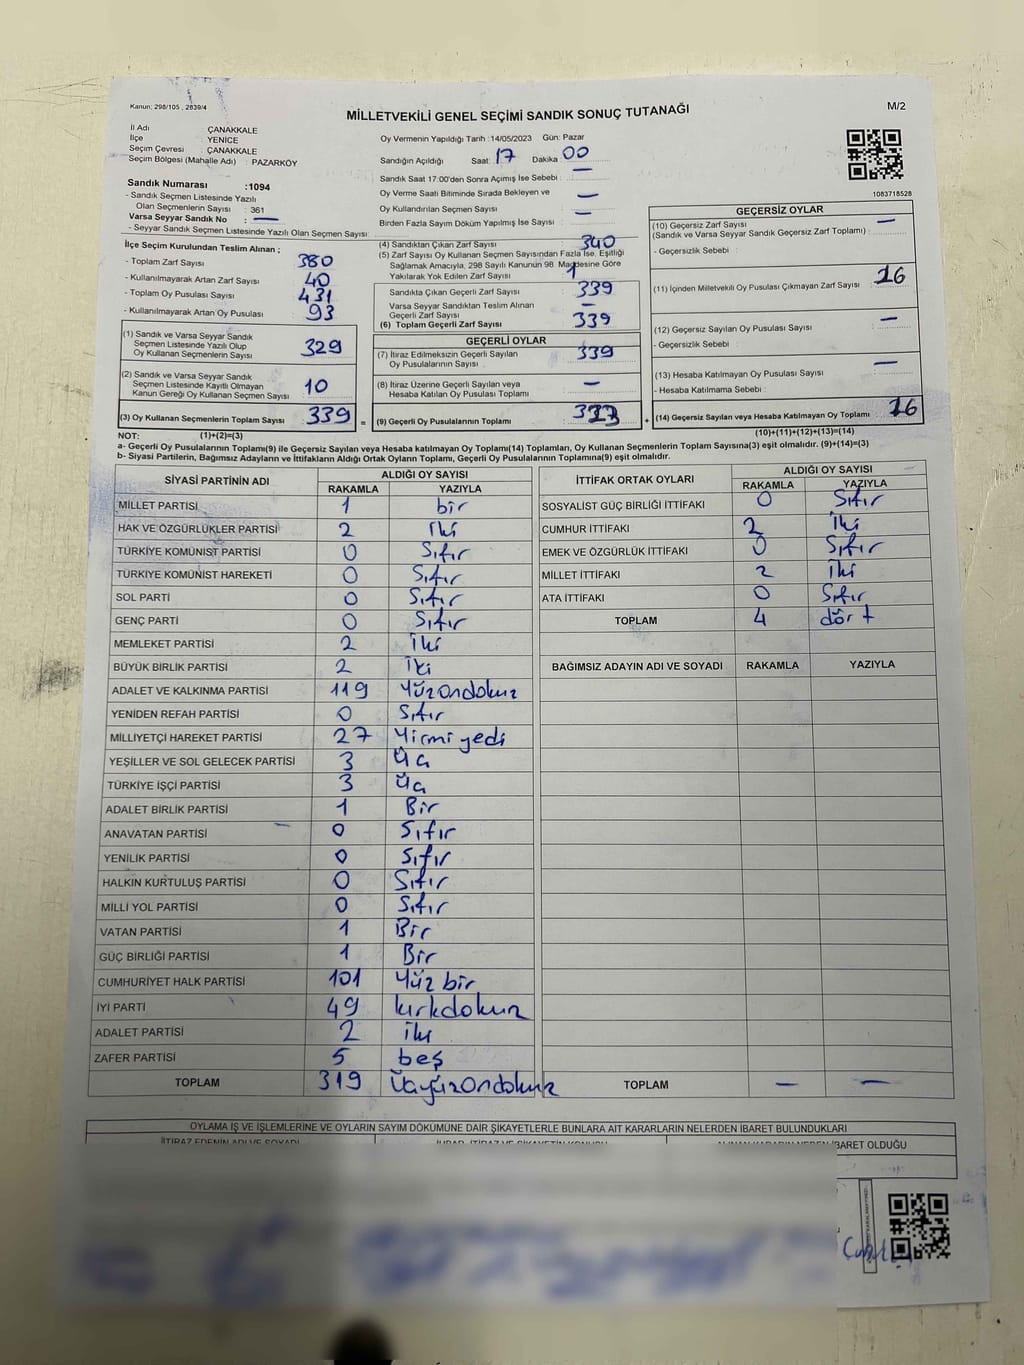 Kanun: 298/105 , 2839/4
MİLLETVEKİLİ GENEL SEÇİMİ SANDIK SONUÇ TUTANAĞI
M/2
İl Adı : ÇANAKKALE
İlçe : YENİCE
Seçim Çevresi : ÇANAKKALE
Seçim Bölgesi (Mahalle Adı) : PAZARKÖY
Sandık Numarası :1094
- Sandık Seçmen Listesinde Yazılı
Olan Seçmenlerin Sayısı : 361
Varsa Seyyar Sandık No : —
- Seyyar Sandık Seçmen Listesinde Yazılı Olan Seçmen Sayısı:
Oy Vermenin Yapıldığı Tarih :14/05/2023 Gün: Pazar
Sandığın Açıldığı Saat: 17 Dakika 00
Sandık Saat 17:00'den Sonra Açımış İse Sebebi : —
Oy Verme Saati Bitiminde Sırada Bekleyen ve —
Oy Kullandırılan Seçmen Sayısı —
Birden Fazla Sayım Döküm Yapılmış İse Sayısı :
1083718528
İlçe Seçim Kurulundan Teslim Alınan ;
- Toplam Zarf Sayısı 380
- Kullanılmayarak Artan Zarf Sayısı : 40
- Toplam Oy Pusulası Sayısı 431
- Kullanılmayarak Artan Oy Pusulası : 93
(1) Sandık ve Varsa Seyyar Sandık
Seçmen Listesinde Yazılı Olup
Oy Kullanan Seçmenlerin Sayısı 329
(2) Sandık ve Varsa Seyyar Sandık
Seçmen Listesinde Kayıtlı Olmayan
Kanun Gereği Oy Kullanan Seçmen Sayısı 10
(3) Oy Kullanan Seçmenlerin Toplam Sayısı 339 =
(4) Sandıktan Çıkan Zarf Sayısı 340
(5) Zarf Sayısı Oy Kullanan Seçmen Sayısından Fazla İse, Eşitliği
Sağlamak Amacıyla, 298 Sayılı Kanunun 98. Maddesine Göre
Yakılarak Yok Edilen Zarf Sayısı : 1
Sandıkta Çıkan Geçerli Zarf Sayısı 339
Varsa Seyyar Sandıktan Teslim Alınan
Geçerli Zarf Sayısı —
(6) Toplam Geçerli Zarf Sayısı 339
GEÇERLİ OYLAR
(7) İtiraz Edilmeksizin Geçerli Sayılan 339
Oy Pusulalarının Sayısı
(8) İtiraz Üzerine Geçerli Sayılan veya —
Hesaba Katılan Oy Pusulası Toplamı
(9) Geçerli Oy Pusulalarının Toplamı +
GEÇERSİZ OYLAR
(10) Geçersiz Zarf Sayısı —
(Sandık ve Varsa Seyyar Sandık Geçersiz Zarf Toplamı) :
- Geçersizlik Sebebi :
(11) İçinden Milletvekili Oy Pusulası Çıkmayan Zarf Sayısı : 16
(12) Geçersiz Sayılan Oy Pusulası Sayısı : —
- Geçersizlik Sebebi :
(13) Hesaba Katılmayan Oy Pusulası Sayısı : —
- Hesaba Katılmama Sebebi :
(14) Geçersiz Sayılan veya Hesaba Katılmayan Oy Toplamı 16
NOT: (1)+(2)=(3)
(10)+(11)+(12)+(13)=(14)
a- Geçerli Oy Pusulalarının Toplamı(9) ile Geçersiz Sayılan veya Hesaba katılmayan Oy Toplamı(14) Toplamları, Oy Kullanan Seçmenlerin Toplam Sayısına(3) eşit olmalıdır. (9)+(14)=(3)
b- Siyasi Partilerin, Bağımsız Adayların ve İttifakların Aldığı Ortak Oyların Toplamı, Geçerli Oy Pusulalarının Toplamına(9) eşit olmalıdır.
SİYASİ PARTİNİN ADI ALDIĞI OY SAYISI
RAKAMLA YAZIYLA
MİLLET PARTİSİ 1 bir
HAK VE ÖZGÜRLÜKLER PARTİSİ 2 iki
TÜRKİYE KOMÜNİST PARTİSİ 0 Sıfır
TÜRKİYE KOMÜNİST HAREKETİ 0 Sıfır
SOL PARTİ 0 Sıfır
GENÇ PARTİ 0 Sıfır
MEMLEKET PARTİSİ 2 iki
BÜYÜK BİRLİK PARTİSİ 2 iki
ADALET VE KALKINMA PARTİSİ 119 Yüzondokuz
YENİDEN REFAH PARTİSİ 0 Sıfır
MİLLİYETÇİ HAREKET PARTİSİ 27 Yirmi yedi
YEŞİLLER VE SOL GELECEK PARTİSİ 3 Üç
TÜRKİYE İŞÇİ PARTİSİ 3 Üç
ADALET BİRLİK PARTİSİ 1 Bir
ANAVATAN PARTİSİ 0 Sıfır
YENİLİK PARTİSİ 0 Sıfır
HALKIN KURTULUŞ PARTİSİ 0 Sıfır
MİLLİ YOL PARTİSİ 0 Sıfır
VATAN PARTİSİ 1 Bir
GÜÇ BİRLİĞİ PARTİSİ 1 Bir
CUMHURİYET HALK PARTİSİ 101 Yüz bir
İYİ PARTİ 49 kırkdokuz
ADALET PARTİSİ 2 iki
ZAFER PARTİSİ 5 beş
TOPLAM 319 Üçyüzondokuz
İTTİFAK ORTAK OYLARI ALDIĞI OY SAYISI
RAKAMLA YAZIYLA
SOSYALİST GÜÇ BİRLİĞİ İTTİFAKI 0 Sıfır
CUMHUR İTTİFAKI 2 iki
EMEK VE ÖZGÜRLÜK İTTİFAKI 0 Sıfır
MİLLET İTTİFAKI 2 iki
ATA İTTİFAKI 0 Sıfır
TOPLAM 4 dört
BAĞIMSIZ ADAYIN ADI VE SOYADI RAKAMLA YAZIYLA
TOPLAM — —
OYLAMA İŞ VE İŞLEMLERİNE VE OYLARIN SAYIM DÖKÜMÜNE DAİR ŞİKAYETLERLE BUNLARA AİT KARARLARIN NELERDEN İBARET BULUNDUKLARI
İTİRAZ EDENİN ADI VE SOYADI
İBARET OLDUĞU